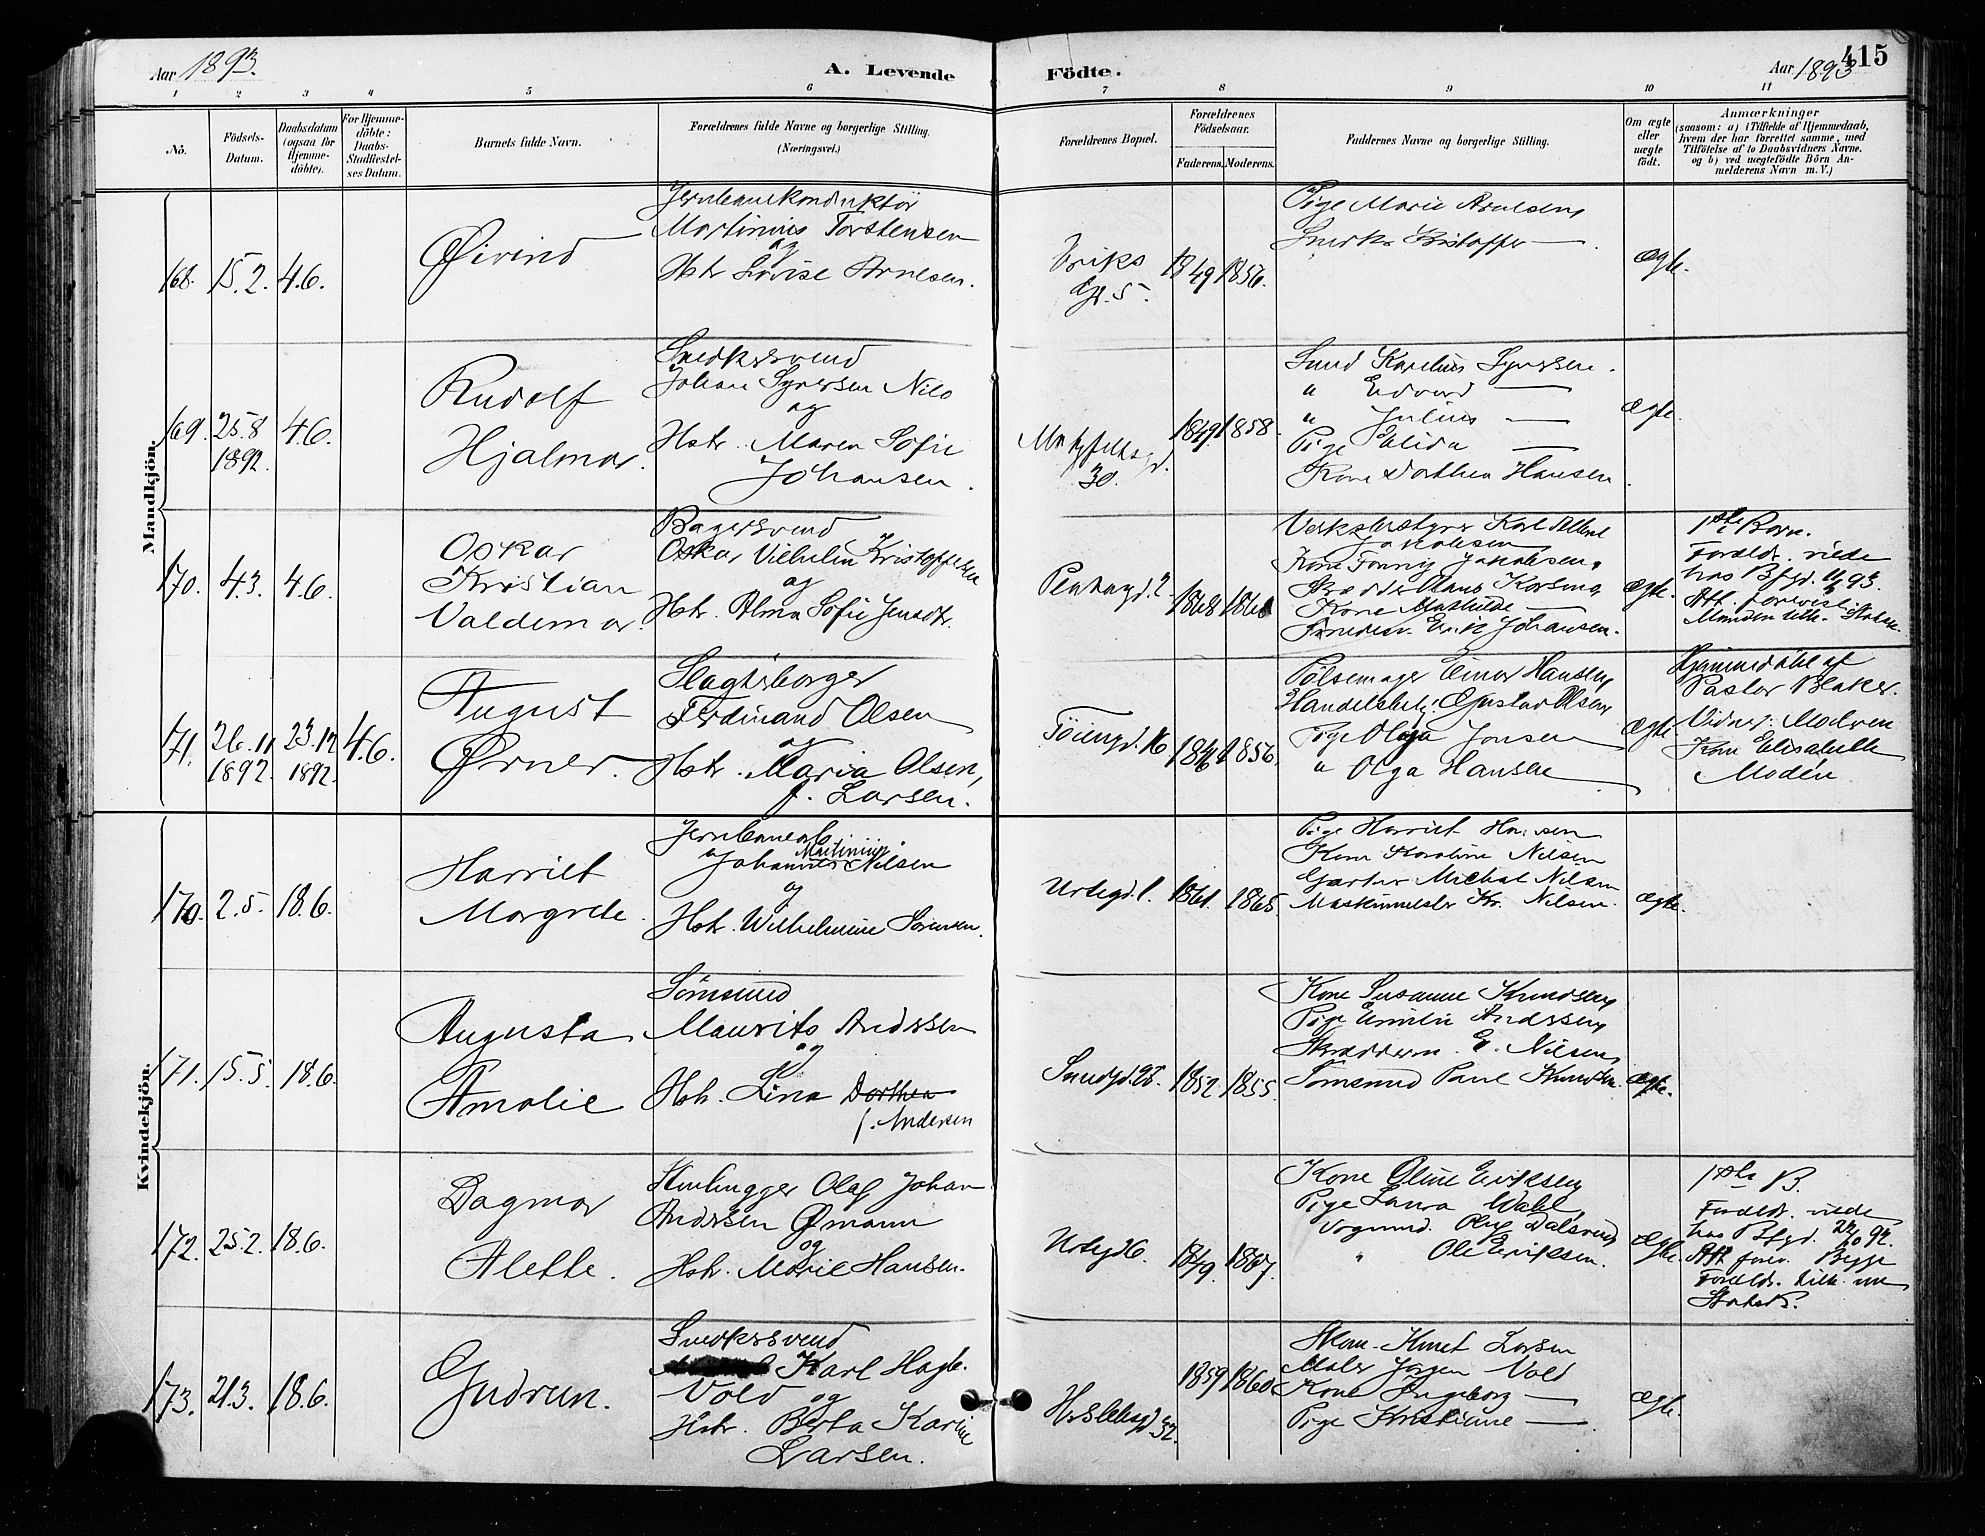 Aar 1893.
A. Levende
Födte.
Aar 1893
415
1 2 3 4 5 6 7 8 9 10 11
No.
Födsels-
Datum.
Daabsdatum
(ogsaa for
Hjemme-
döbte).
For Hjemme-
döbte:
Daabs-
Stadfæstel-
ses Datum.
Barnets fulde Navn.
Forældrenes fulde Navne og borgerlige Stilling.
(Næringsvei.)
Forældrenes Bopæl.
Forældrenes
Födselsaar.
Faderens. Moderens.
Faddernes Navne og borgerlige Stilling.
Om ægte
eller
uægte
födt.
Anmærkninger
(saasom: a) i Tilfælde af Hjemmedaab,
hvem der har forrettet samme, med
Tilföielse af to Daabsvidners Navne.
og b) ved uægtefödte Börn An-
melderens Navn m. V.)
Mandkjön.
168. 15.2. 4.6.
Øivind
Jernbanekonduktør
Martinius Torstensen
og
Hstr. Lovise Arnesen.
Eriks
Gd. 5.
1849 1856.
Pige Marie Arnesen
Kristoffer —
ægte.
169. 25.8 4.6.
1892.
Rudolf
Hjalmar.
Snedkersvend
Johan Syversen Nilo
og
Hstr. Maren Sofie
Johansen.
30.
1849 1858.
Syversen.
" Edvard —
" Julius —
Pige Alida —
Kone Dorthea Hansen.
ægte.
170. 4.3. 4.6.
Oskar
Kristian
Valdemar.
Bagersvend
Oskar Vilhelm Kristoffersen
og
Hstr. Alma Sofie
2.
1868
Karl Albert
Jakobsen
Kone Fanny Jakobsen.
Hans Korsmo
Kone Mathilde —
Erik Johansen.
ægte.
1ste Barn.
Foreldr. viede
hos Bfgd. 11/2 93.
Att. forevist.
171. 26.11 23.12 4.6.
1892. 1892.
August
Ørner.
Slagterborger
Ferdinand Olsen
og
Hstr. Maria Olsen,
f. Larsen.
Töiengd. 16
1856.
Pölsemager Einar Hansen
Gustav Olsen
Pige Olga Jonsen
" Olga Hansen
ægte
Hjemmedöbt af
Pastor Blaker.
Vidner: Madam
Kone Elisabeth
Modén
Kvindekjön.
170. 2.5. 18.6.
Harriet
Margrete.
Jernbanearb.
Johannes Martinius Nilsen
og
Hstr. Wilhelmine Sörensen.
Urtegd. 1.
1861. 1865.
Pige Harriet Hansen
Kone Karoline Nilsen
Gartner Michal Nilsen
Maskinmester Kr. Nilsen.
ægte.
171. 15.5. 18.6.
Augusta
Amalie
Tömsmed
Maurits Andersen
og
Hstr. Lina Dorthea
f. Andersen
1852. 1855.
Kone Susanne Knudsen
Pige Emilie Andersen
Skrædderm. E. Nilsen
Tömsmed Paul Knudsen.
ægte.
172. 25.2. 18.6.
Dagmar
Alette.
Stenhugger Olaf Johan
Andersen Ømann
og
Hstr. Marie Hansen.
1849. 1867.
Kone Oline Eriksen
Pige Laura Wahl
Vognmd. Oluf Dalsvend
" Ole Eriksen.
ægte.
1ste B.
Foreldr. viede
hos Bfgd. 22/10 92.
Att. forev. Begge
Foreldr. tilh. nu
Statsk.
173. 21.3. 18.6.
Gudrun.
Snedkersvend
Karl Hagb.
Vold og
Hstr. Berta Karine
Larsen.
Herslebsgd. 32.
1859 1860
Knut Larsen
Maler Jörgen Vold
Kone Ingeborg —
Pige Kristiane —
ægte.